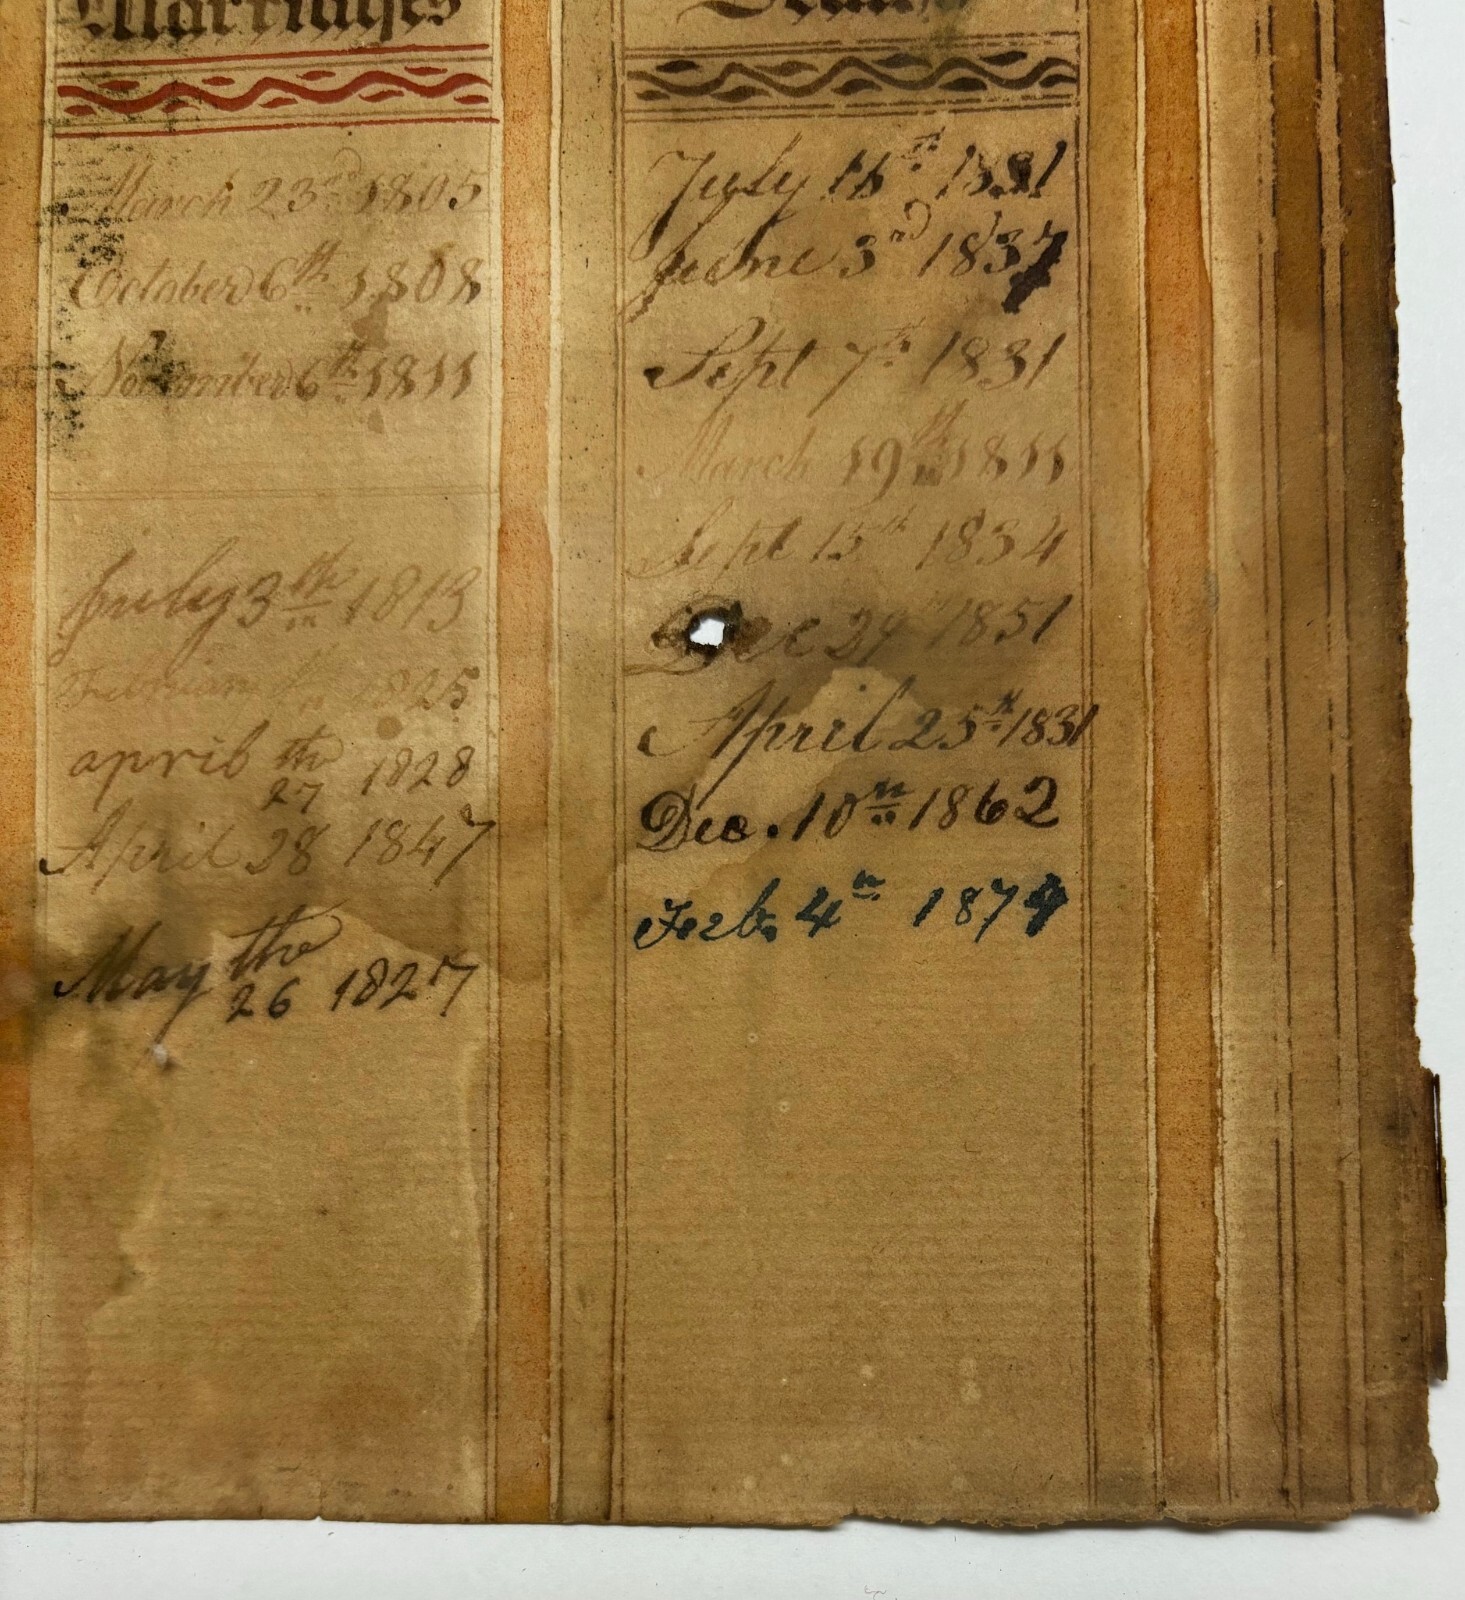 Marriages
March 23rd 1805
October 6th 1808
November 6th 1811
July 3th 1813
1825
aprib th
27 1828
April 28 1847
May the
26 1827
Deaths
July 1831
June 3rd 1837
Sept 7th 1831
March 19th 1811
Sept 15th 1834
Dec 29 1851
April 25th 1831
Dec. 10th 1862
Feb. 4th 187